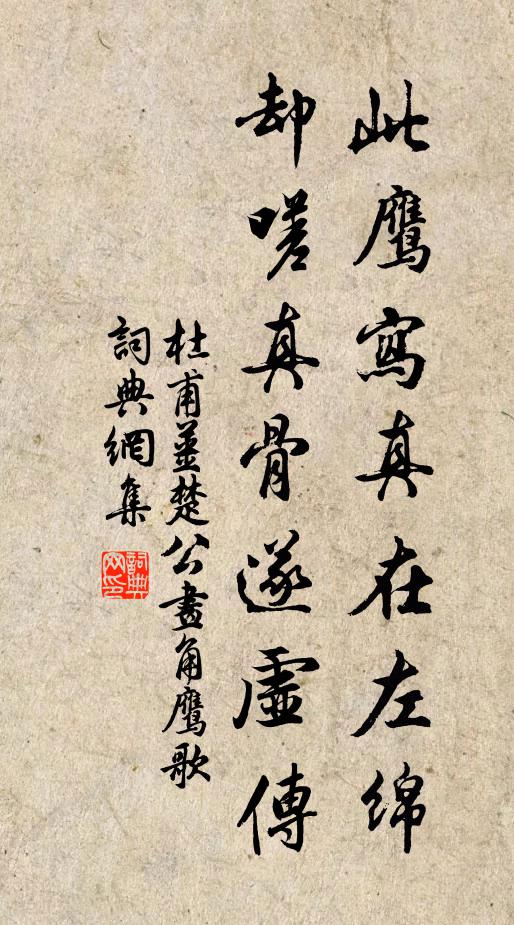 此鹰寫真在左绵
却嗟真骨遂虚傳
杜甫姜楚公畫角鹰歌
詞典網集
詞典网印